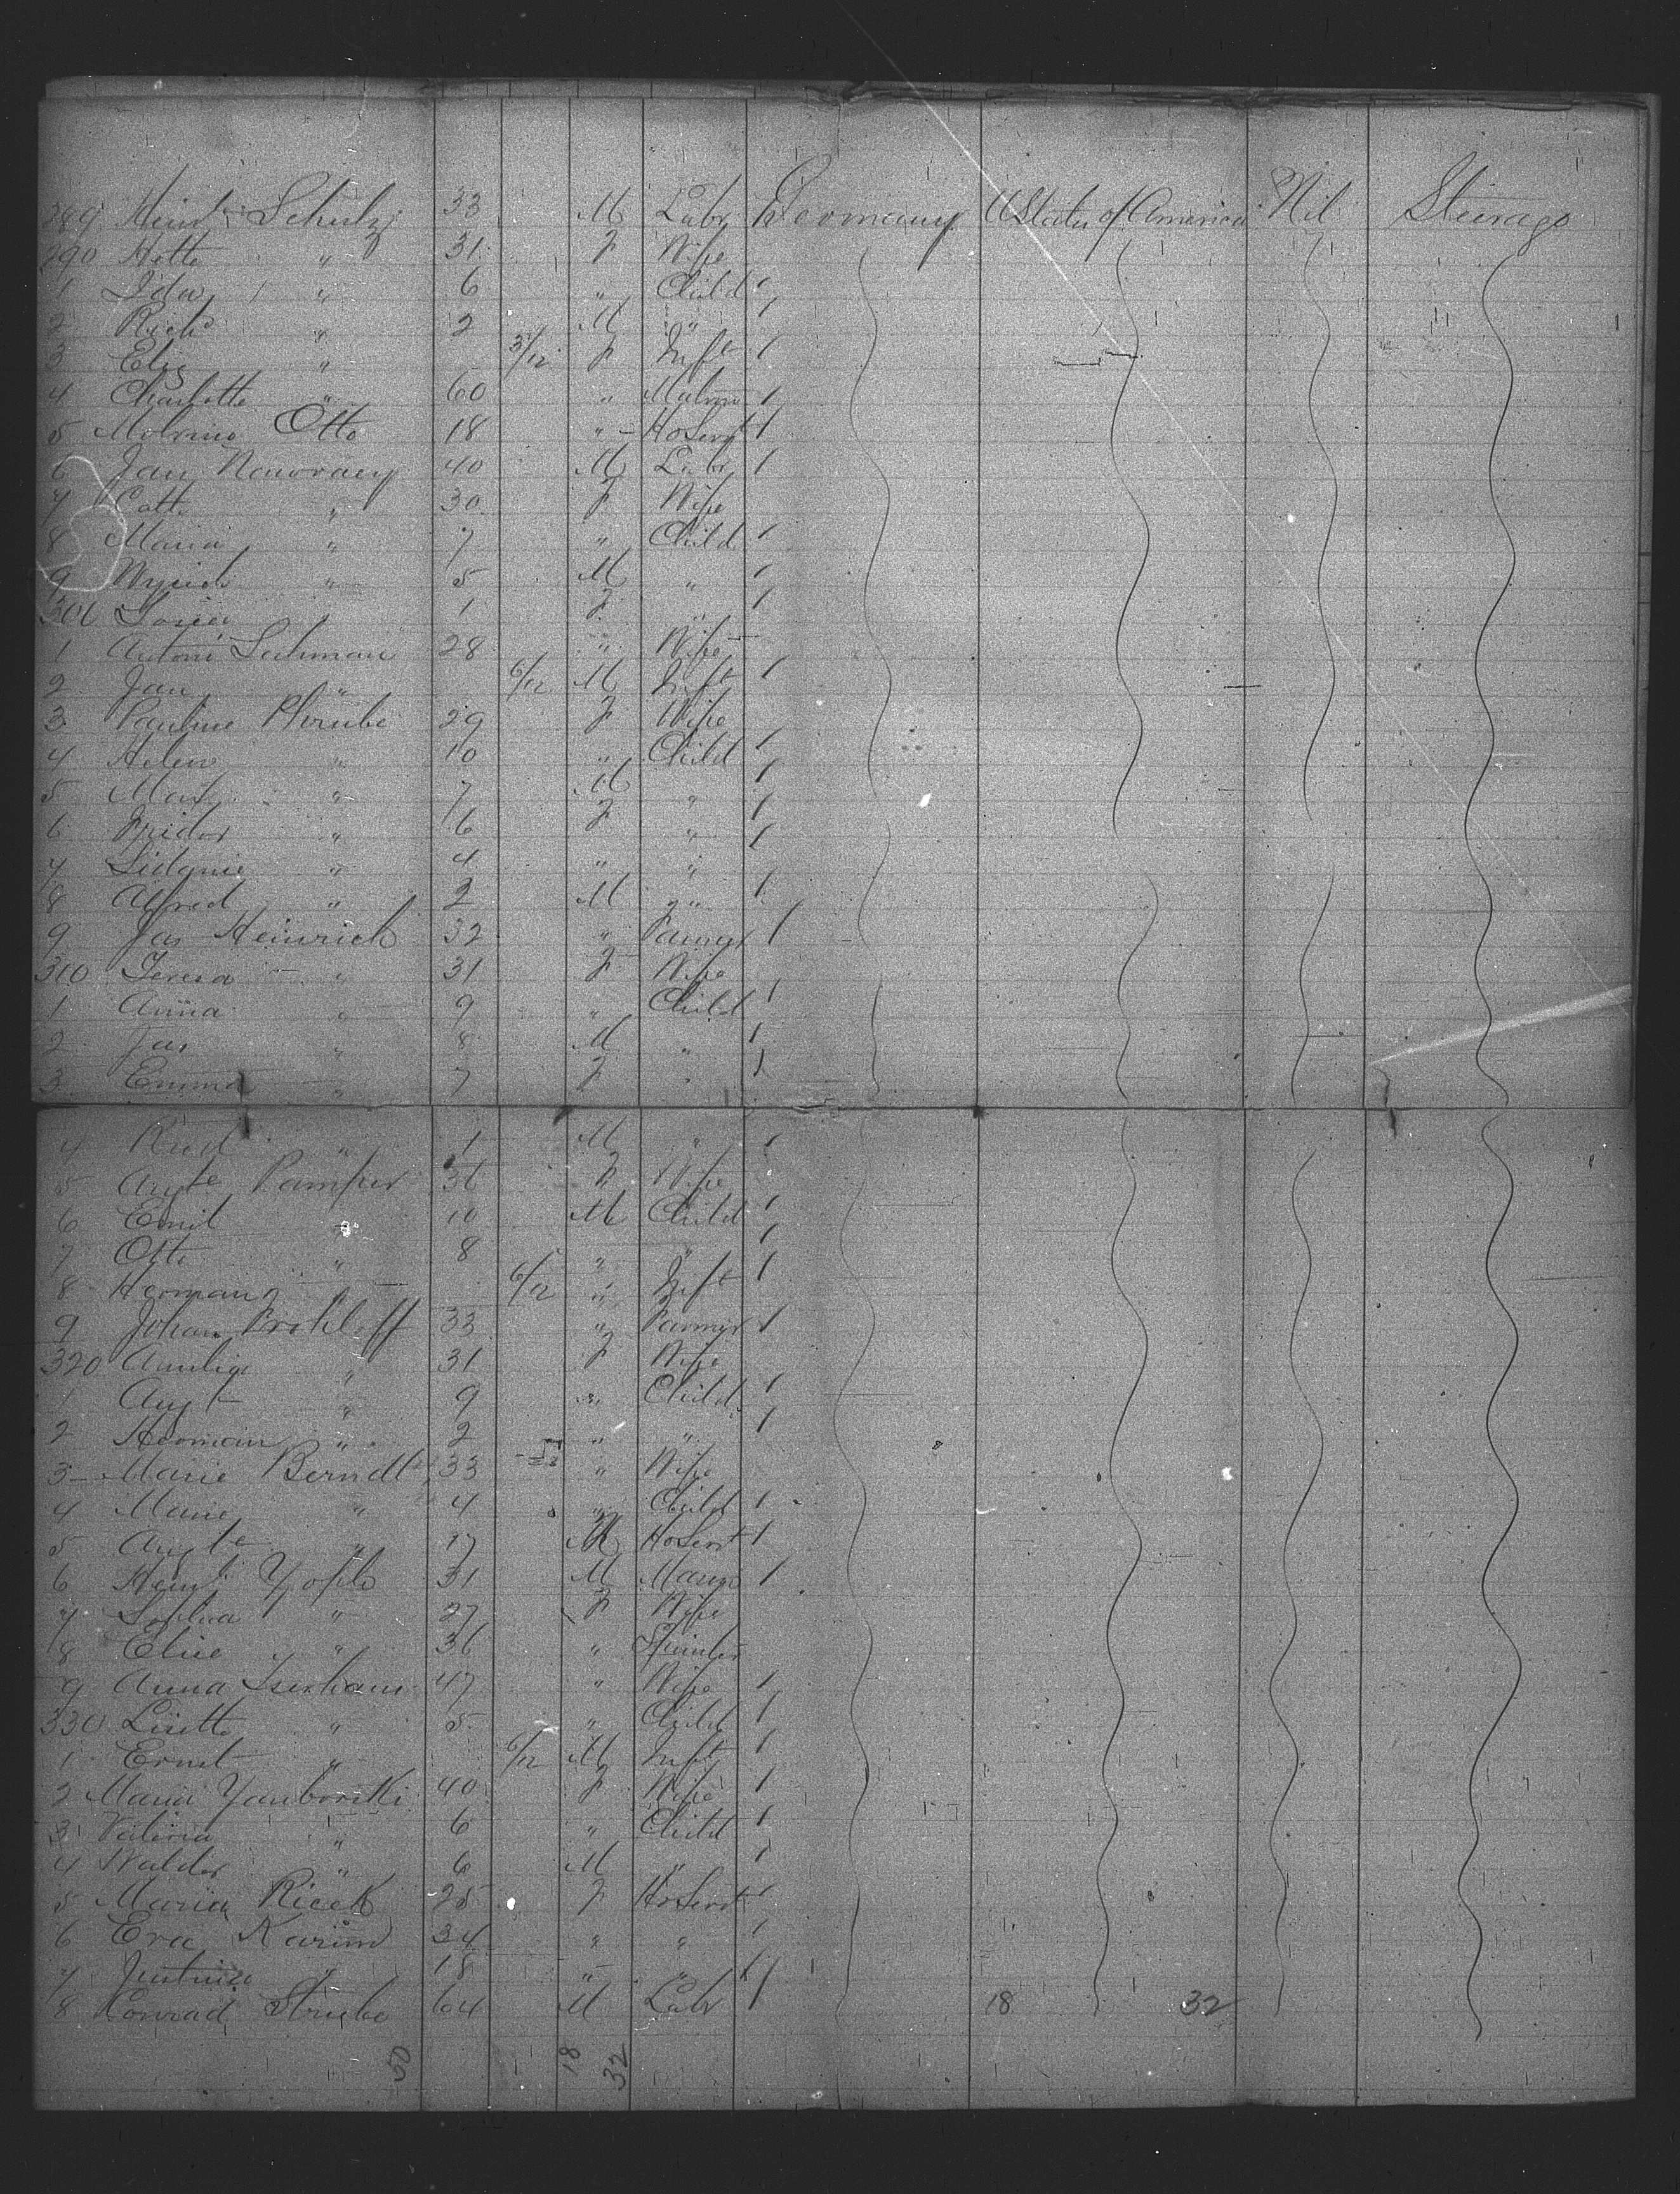 289 Heinr Schulz 33 M Labr Germany U States of America Nil Steerage
290 Hette " 31 F Wife
1 Ida " 6 " Child
2 Richd " 2 M "
3 Eliz " 3/12 F Inft
4 Charlotte " 60 " Matron
5 Otto 18 " HoServt
6 Jan Nawraey 40 M Labr
7 Cath " 30 F Wife
8 Maria " 7 " Child
9 " 5 M "
300 " 1 F "
1 Antoni Lechman 28 " Wife
2 Jan " 6/12 M Inft
3 Pauline 29 F Wife
4 Helen " 10 " Child
5 Max " 7 M "
6 " 6 F "
7 " 4 " "
8 Alfred " 2 M "
9 Jos Heinrich 32 " Farmer
310 Teresa " 31 F Wife
1 Anna " 9 " Child
2 Jos " 8 M "
3 Emma " 7 F "
4 Rud " 1 M "
5 Augte Pamper 36 F Wife
6 Emil " 10 M Child
7 Otto " 8 " "
8 Hermann " 6/12 " Inft
9 Johan Prohloff 33 " Farmer
320 Amelia " 31 F Wife
1 Augt " 9 " Child
2 Herman " 2 " "
3 Marie Berndt 33 " Wife
4 Marie " 4 " Child
5 Augte " 17 HoServt
6 31 M Mason
7 Sophia " 27 F Wife
8 Elise " 36 " Spinster
9 Anna Iserham 47 " Wife
330 Lisette " 5 " Child
1 Ernst " 6/12 M Inft
2 Maria Yanborski 40 F Wife
3 Valeria " 6 " Child
4 " 6 M "
5 Maria Ricek 25 F HoServt
6 Eva 34 " "
7 Justina " 18 " "
8 Conrad Strube 64 M Labr 18 32
50 18 32